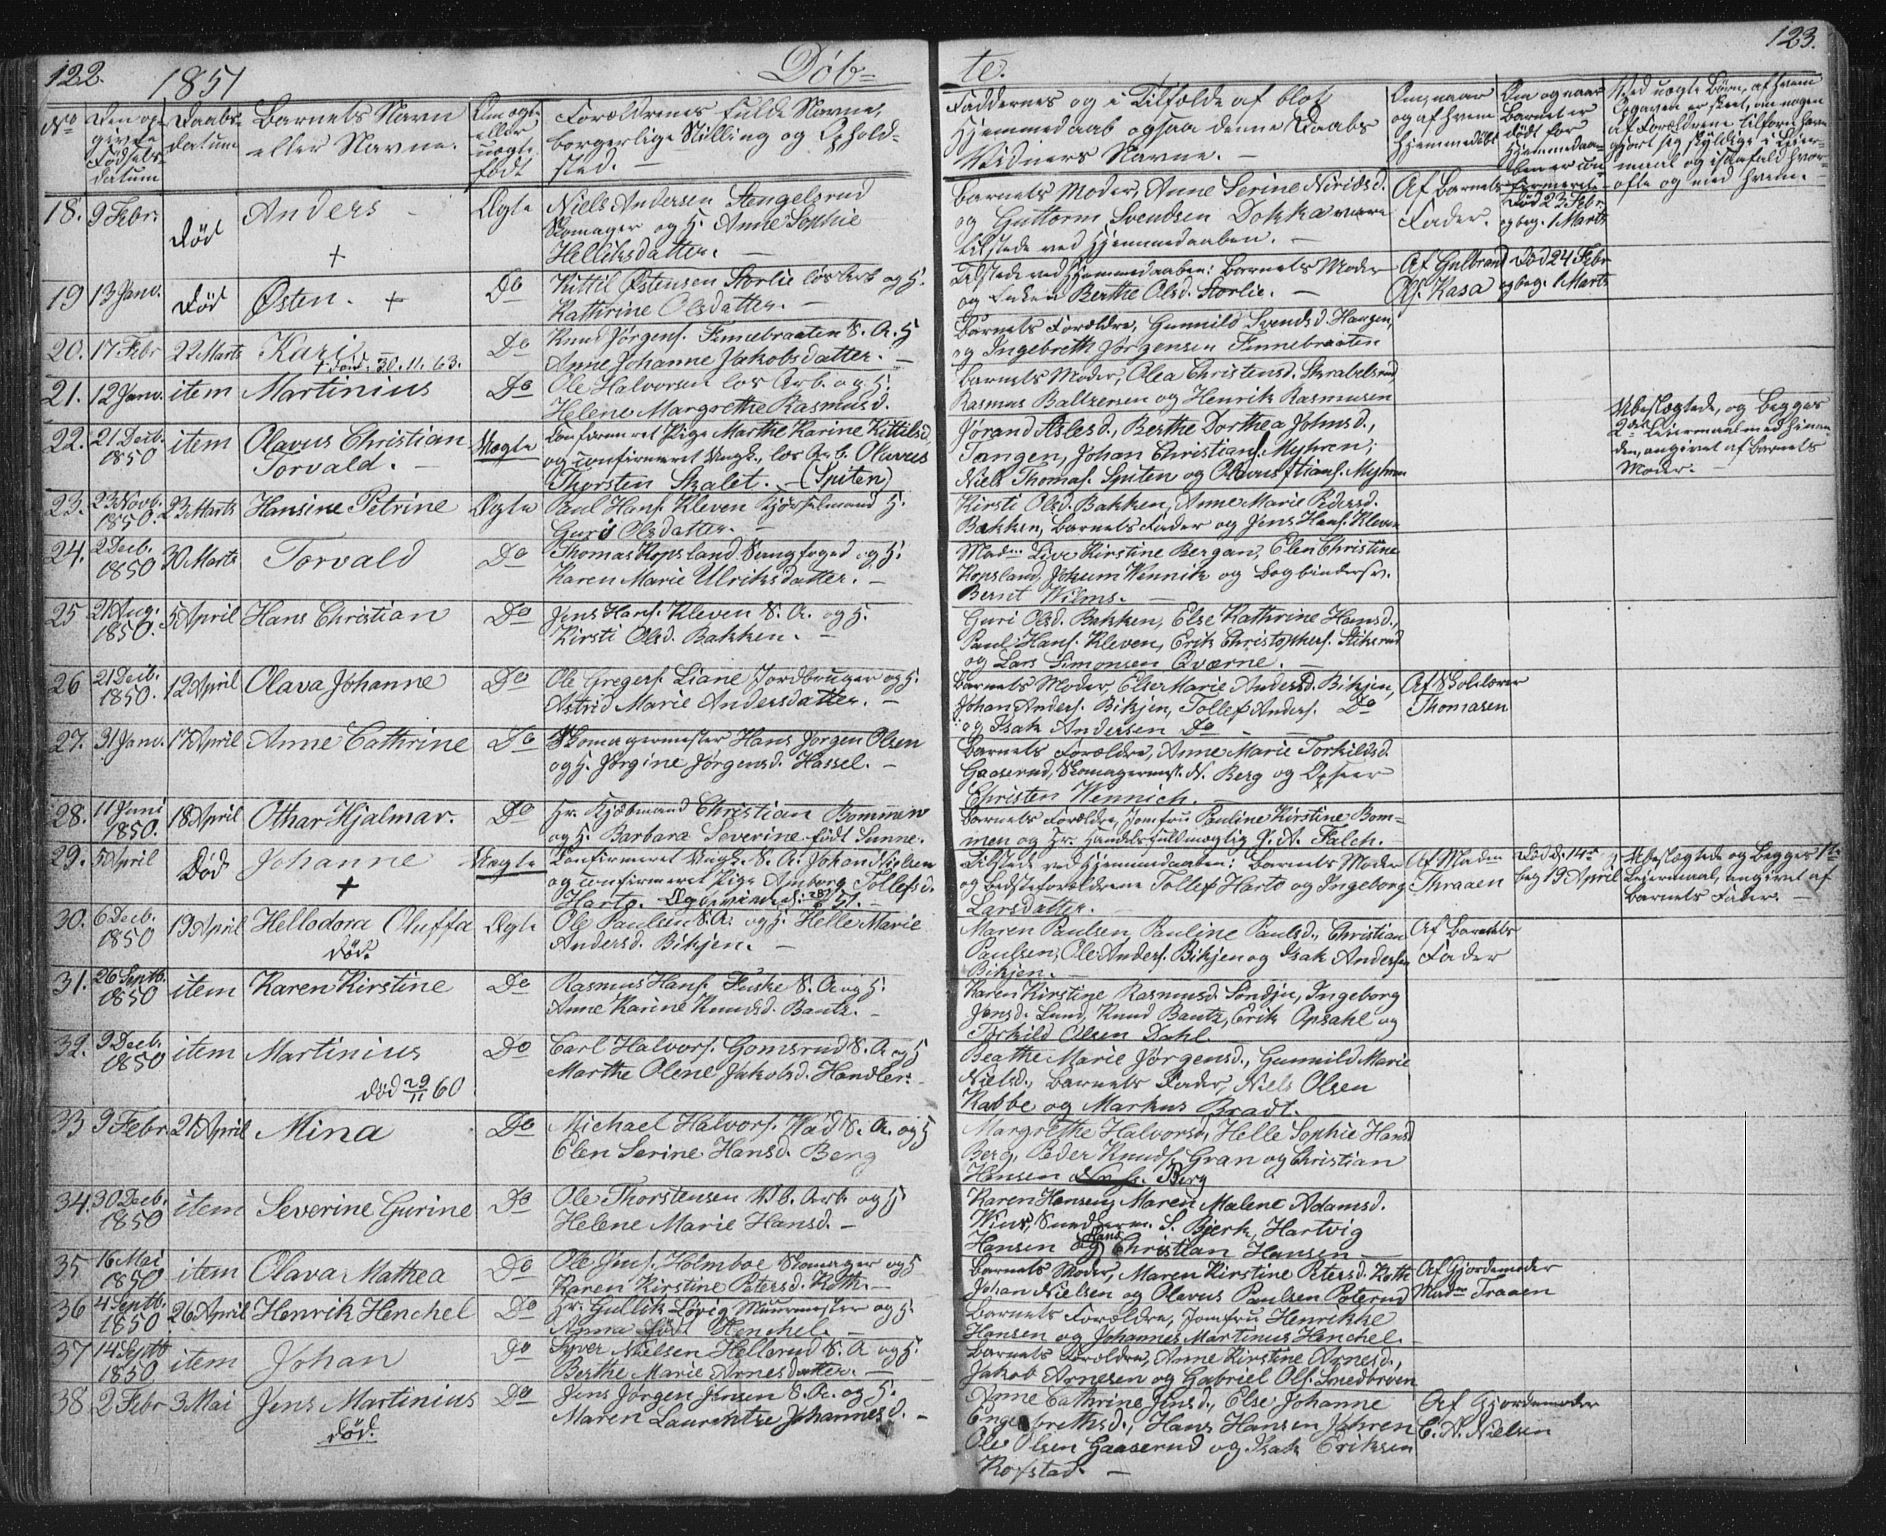 122. 1851 Døb=
No
Den op
givne
Fødsels
datum
Daabs
datum
Barnets Navn
eller Navne.
Om ægte
eller
uægte
født
Forældrenes fulde Navne,
borgerlige Stilling og Ophold-
sted. —
18. 9 Febr. død Anders + Ægte Niels Andersen Stengelsrud
Skomager og H. Anne Sophie
Helliksdatter. —
19 13 Janv. død Østen. + Do Kittil Østensen Storlie løs Arb og H.
Kathrine Olsdatter. —
20. 17 Febr 22 Marts Kari Do Knud Jørgens. Finnebraaten S. A. H
+ død. 30. 11. 63. Anne Johanne Jakobsdatter. —
21. 12 Janv. item Martinius Do Ole Halvorsen løs Arb. og H.
Helene Margrethe Rasmusd.
22. 21 Decb. 1850 item Olavus Christian Torvald. — Uægte Confirmeret Pige Marthe Karine Kittilsd.
og confirmeret Ungk., løs Arb. Olavus
Thorsten Skalet. — (Spiten)
23. 23 Novb. 1850. 23 Marts Hansine Petrine Ægte Paul Hans. Kleven Kjørselmand H.
Guro Olsdatter. —
24. 2 Decb. 1850 30 Marts Torvald Do Thomas Kopsland Vangfoged og H.
Karen Marie Ulriksdatter. —
25 21 Aug. 1850. 5 April Hans Christian Do Jens Hans. Kleven S. A. og H.
Kirsti Olsd. Bakken. —
26 21 Decb. 1850. 12 April Olava Johanne Do Ole Gregers. Liane Jordbruger og H.
Astrid Marie Andersdatter. —
27. 31 Janv. 17 April Anne Cathrine Do Skomagermester Hans Jørgen Olsen
og H. Jørgine Jørgensd. Hassel. —
28. 11 Juni 1850. 18 April Othar Hjalmar. Do Hr. Kjøbmand Christian Bommen
og H. Barbara Severine født Sunne.
29. 5 April død Johanne + Uægte Confirmeret Ungk. S. A. Johan Nielsen
og confirmeret Pige Amborg Tollefsd.
Harto.
30. 6 Decb. 1850 19 April Hellodora Oluffa død. Ægte Ole Paulsen S. A. og H. Helle Marie
Andersd. Bikjen. —
31. 26 Septb. 1850 item Karen Kirstine Do Rasmus Hans. Fuske S. A. og H.
Anne Karine Knudsd. Bautz. —
32. 9 Decb. 1850 item Martinius Do Carl Halvors. Gomsrud S. A. og H
død 29/11 60. Marthe Olene Jakobsd. Handler. —
33 9 Febr. 21 April Mina Do Michael Halvors. Wad S. A. og H
Elen Serine Hansd. Berg
34. 30 Decb. 1850 item Severine Gurine Do Ole Thorstensen Vb. Arb. og H.
Helene Marie Hansd. —
35 16 Mai 1850 item Olava Mathea Do Ole Jens. Holmboe Skomager og H
Karen Kirstine Petersd. Koth. —
36 4 Septb. 1850 26 April Henrik Henchel Do Hr. Gullik Løvig Muurmester og H.
Anna født Henchel. —
37 14 Septb 1850. item Johan Do Syver Nielsen Hellerud S. A og H.
Berthe Marie Arnesdatter. —
38 2 Febr 3 Mai Jens Martinius død. Do Jens Jørgen Jensen S. A. og H.
Maren Laurentze Johannesd. —
te. 123.
Faddernes og i Tilfælde af blot
Hjemmedaab ogsaa denne Daabs
Vidners Navne. —
Om, naar
og af hvem
hjemmedøbt
Om og naar
Barnet er
dødt før
Hjemmedaa-
ben er con
firmeret
Ved uægte Børn, af hvem
Opgaven er skeet, om nogen
af Forældrene tilforn have
gjort sig skyldige i Leier-
maal og i saafald hvor-
ofte og med hvem. —
Barnets Moder, Anne Serine Nirisd. Af Barnets Død 23 Febr.
og Guttorm Svendsen Dokka vare Fader. og beg. 1 Marts
tilstede ved Hjemmedaaben. —
Tilstede ved Hjemmedaaben: Barnets Moder Af Gulbrand Død 24 Febr
og Enken Berthe Olsd. Storlie. — Ols. Kasa og beg. 1 Marts
Barnets Forældre, Gunnild Svendsd. Haugen,
og Ingebreth Jørgensen Finnebraaten
Barnets Moder, Olea Christensd. Skrabelsrud,
Rasmus Baltzersen og Henrik Rasmusen
Jørand Aslesd., Berthe Dorthea Johnsd., Ubeslægtede, og begges
Tangen, Johan Christians. Myhren, 2det Leiermaal med hinan
Niels Thomas. Spiten og Olavus Stians. Myhren den, angivet af Barnets
Moder. —
Kirsti Olsd. Bakken, Anne Marie Pedersd.
Bakken, Barnets Fader og Jens Hans. Kleven
Madm. Live Kirstine Bergan, Elen Christine
Kopsland, Jokum Wennik og Bogbindersv.
Bernt Wilms. —
Guri Olsd. Bakken, Else Kathrine Hansd.,
Paul Hans. Kleven, Erik Christophers. Stiksrud
og Lars Simonsen Qværne. —
Barnets Moder, Else Marie Andersd. Bikjen, Af Skolelærer
Johan Anders. Bikjen, Tollef Anders. Do Thomasen
og Isak Andersen Do —
Barnets Forældre, Anne Marie Torkildsd.
Gaaserud, Skomagermest. N. Berg og Opseer
Christen Wennich.
Barnets Forældre, Jomfru Pauline Kirstine Bom-
men og Hr. Handelsfuldmægtig J. A. Falch.
Tilstede ved Hjemmedaaben: Barnets Moder Af Madm Død d. 14de Ubeslægtede og begges 1ste
og Bedsteforældrene Tollef Harto og Ingeborg Thraaen beg 19 April Leiermaal, angivet af
Larsdatter. — Barnets Fader. —
Maren Paulsen, Pauline Paulsd., Christian Af Barnets
Paulsen, Ole Anders. Bikjen og Isak Andersen Fader
Bikjen. —
Karen Kirstine Rasmusd. Sondju, Ingeborg
Jensd. Lund, Knud Bautz, Erik Opsahl og
Torkild Olsen Dahl.
Beathe Marie Jørgensd., Gunnild Marie
Nielsd., Barnets Fader, Niels Olsen
Rabbe og Markus Bradt.
Margrethe Halvorsd, Helle Sophie Hansd
Berg, Peder Knuds. Gran og Christian
Hansen Berg
Karen Hansen, Maren Malene Adamsd.
Wius, Snedkerm. S. Bjerk, Hartvig
Hansen og Hans Christian Hansen. —
Barnets Moder, Maren Kirstine Petersd. Koth Af Gjordemoder
Johan Nielsen og Olavus Paulsen Poterud Madm Traaen
Barnets Forældre, Jomfru Henrikke
Hansen og Johannes Martinus Henchel. —
Barnets Forældre, Anne Kirstine Arnesd.,
Jakob Arnesen og Gabriel Ols. Smedbroen
Anne Cathrine Jensd., Else Johanne Af Gjordemoder
Engebrethsd., Hans Hansen Jahren C. N. Nielsen
Ole Olsen Gaaserud og Isak Eriksen
Rofstad. —